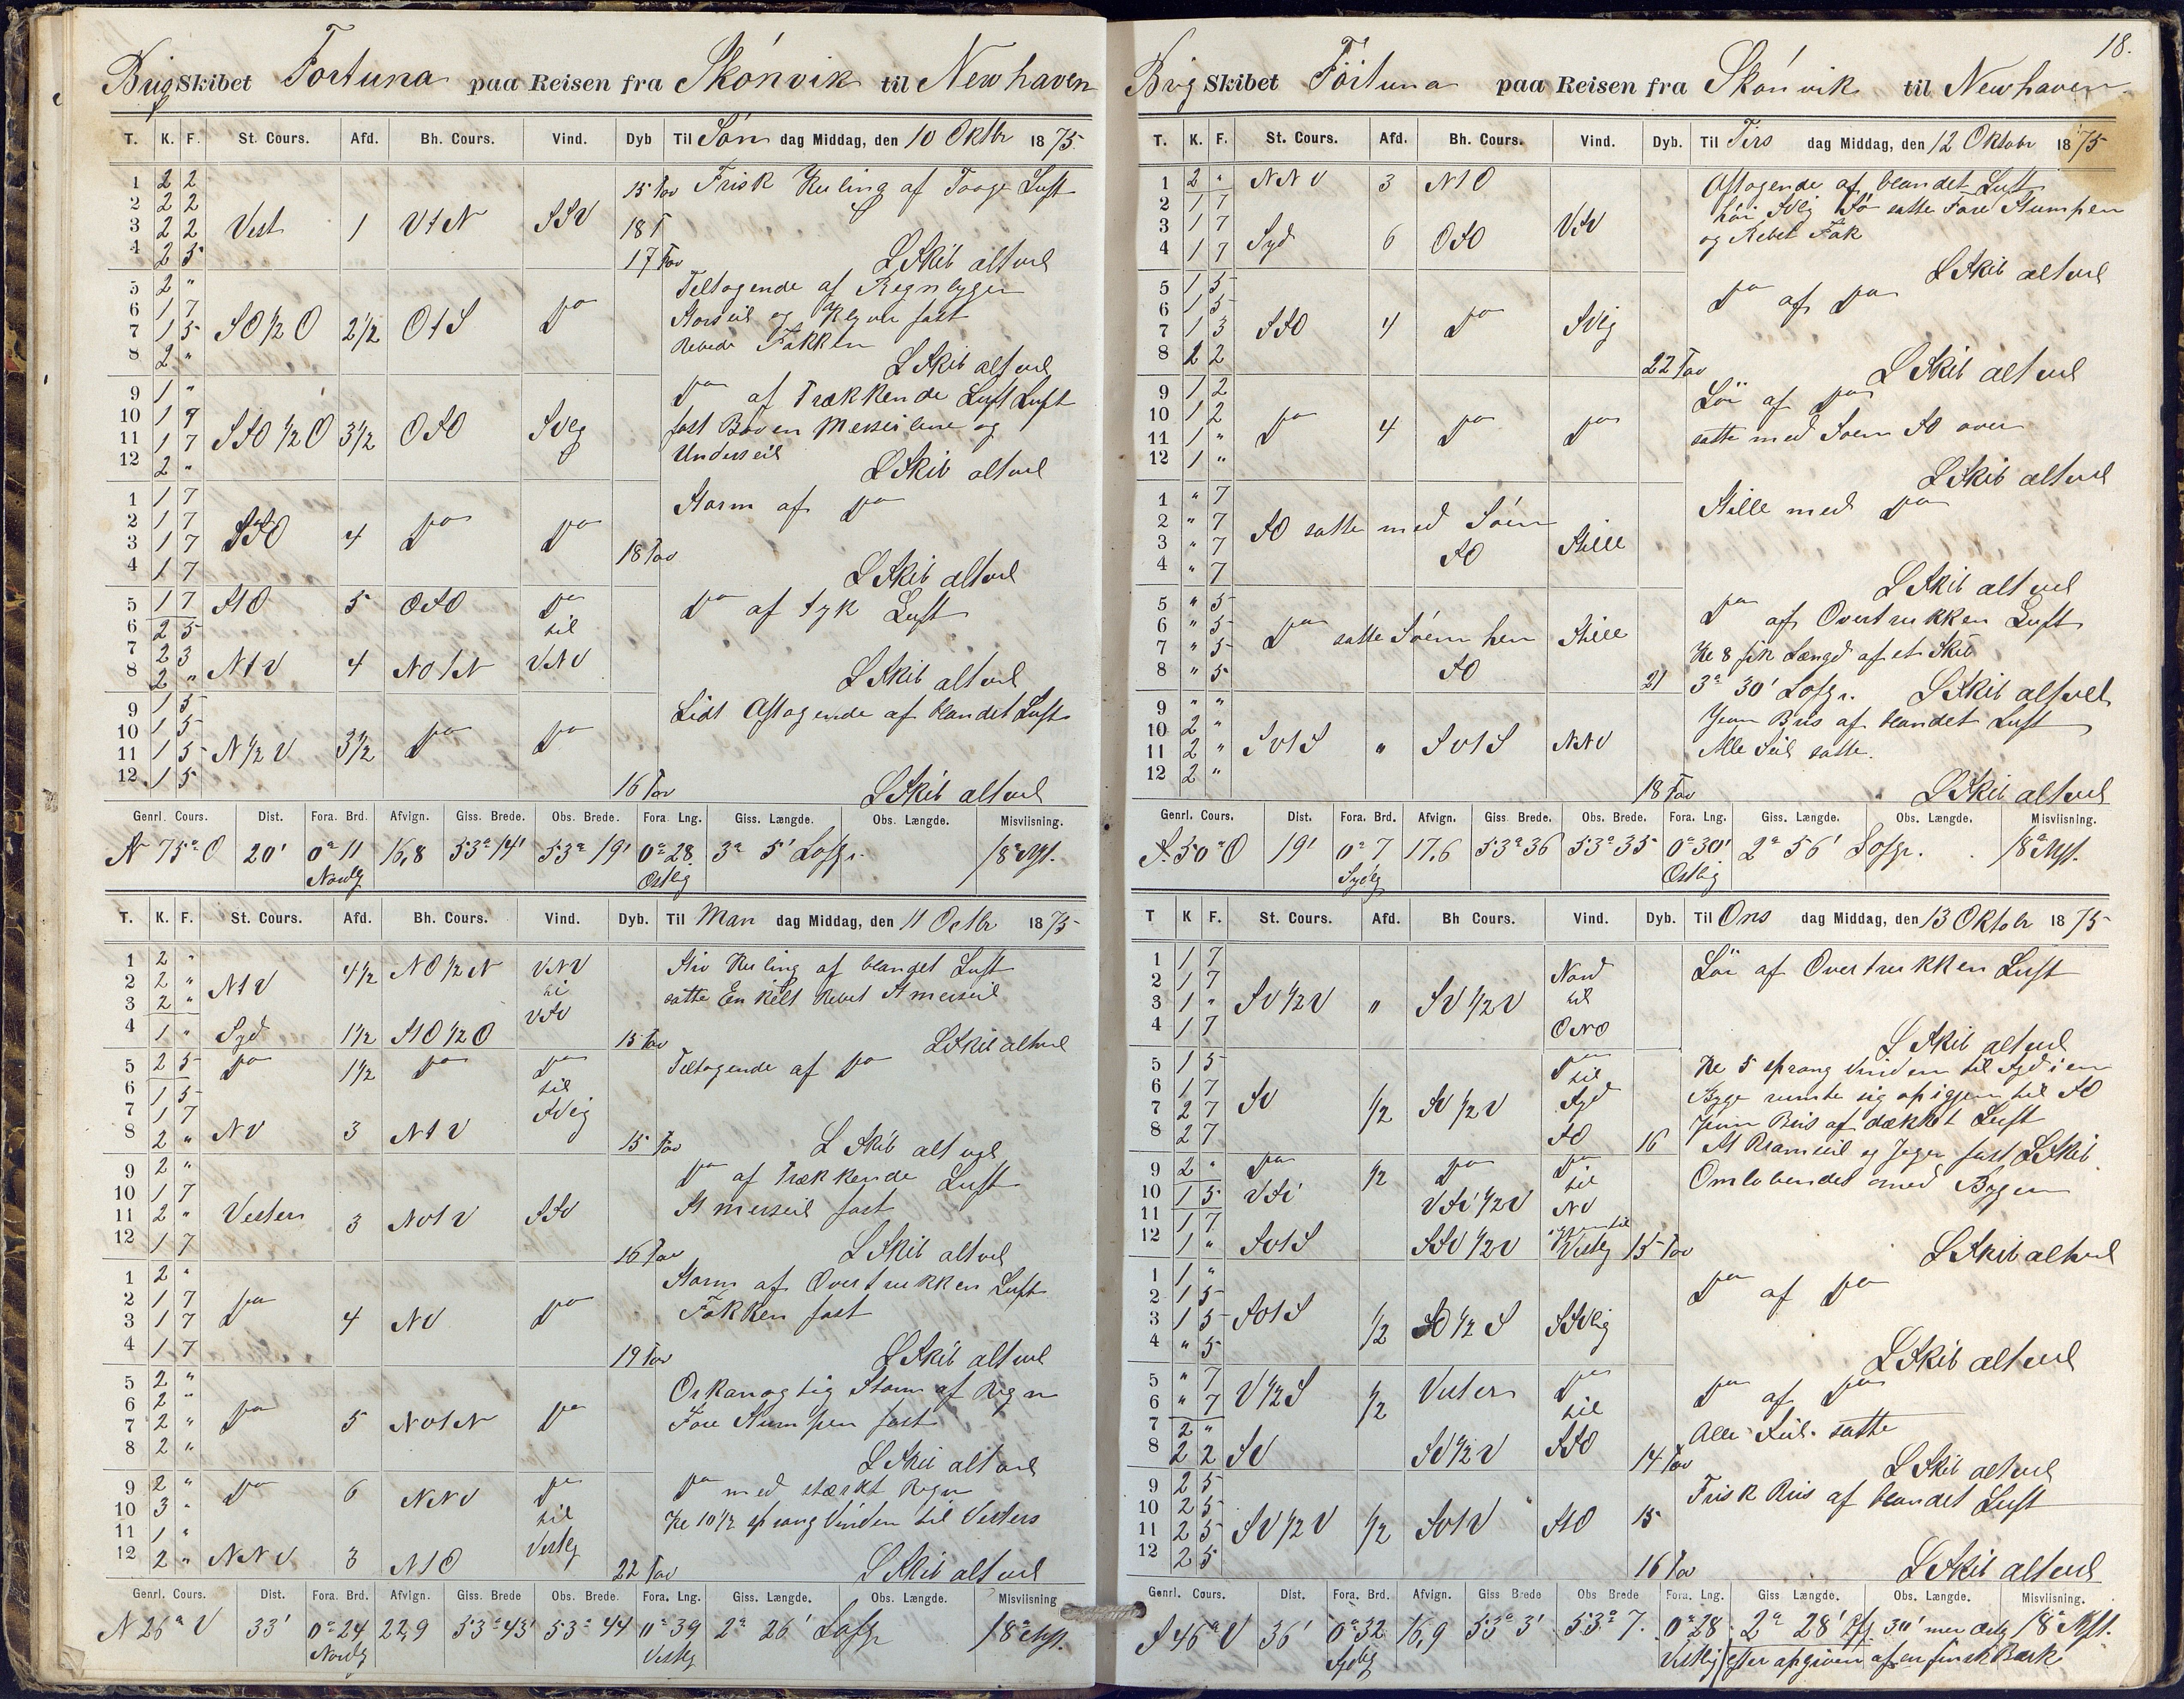 Brig Skibet Fortuna paa Reisen fra Skónvik til New haven
T. K. F. St. Cours. Afd. Bh. Cours. Vind. Dyb Til Søn dag Middag, den 10 Oktbr 1875
1 2 2 15 Fav Frisk Kuling af Taage Luft
2 2 2
3 2 2 Vest 1 VtN SSV 18 F
4 2 5 17 Fav L Skib alt vel
5 2 " Tiltagende af Regnbyger
6 1 7 Storseil og Klyver fast
7 1 5 SO 1/2 O 2 1/2 OtS do Rebede Fokken
8 2 " L Skib alt vel
9 1 " do af Trækkende Luft
10 1 7 fast Boven Merseilene og
11 1 7 SSO 1/2 O 3 1/2 OSO SVlig Underseil
12 2 " L Skib alt vel
1 1 7 Storm af do
2 1 7
3 1 7 SSO 4 do do
4 1 7 18 Fav L Skib alt vel
5 1 7 StO 5 OSO do do af tyk Luft
6 2 5 til
7 2 3
8 2 " NtV 4 NOtN VNV L Skib alt vel
9 1 5 Lidt Aftagende af blandet Luft
10 1 5
11 1 5 N 1/2 V 3 1/2 do do
12 1 5 16 Fav L Skib alt vel
Genrl. Cours. Dist. Fora. Brd. Afvign. Giss. Brede. Obs. Brede. Fora. Lng. Giss. Længde. Obs. Længde. Misviisning.
N 75° O 20' 0° 11 16,8 53° 14' 53° 19' 0° 28 3° 5' Lofgr. 18°
Nordlg Ostlig
T. K. F. St. Cours. Afd. Bh. Cours. Vind. Dyb. Til Man dag Middag, den 11 Octbr 1875
1 2 " 4 1/2 NO 1/2 N VNV Stiv Kuling af blandet Luft
2 2 " NtV til satte Enkelt Rebet St merseil
3 2 " VSV
4 1 " Syd 1 1/2 StO 1/2 O 15 Fav L Skib alt vel
5 2 5 do 1 1/2 do do Tiltagende af do
6 1 5 til
7 1 7 SVlig
8 2 " NV 3 NtV 15 Fav L Skib alt vel
9 2 " do af Trækkende Luft
10 1 7 St merseil fast
11 2 " Vesten 3 NVtV SSV
12 1 7 16 Fav L Skib alt vel
1 2 " Storm af Overtrukken Luft
2 1 7 do do Fokken fast
3 1 7 4 NV
4 1 7 19 Fav L Skib alt vel
5 2 " Orkanagtig Storm af Regn
6 2 " Fore Stumpen fast
7 2 " do 5 NVtN do
8 2 " L Skib alt vel
9 2 " do 6 NNV do do med stærkt Regn
10 3 " til Kl 10 1/2 sprang Vinden til Vesters
11 1 " Vestlg
12 2 " NNV 3 NtO 22 Fav L Skib alt vel
Genrl. Cours. Dist. Fora. Brd. Afvign. Giss. Brede Obs. Brede. Fora. Lng. Giss. Længde. Obs. Længde. Misviisning
N 26° V 33' 0° 24 22,9 53° 43' 53° 44 0° 39 2° 26' Lofgr 18°
Nordlg Vestlg
18.
Brig Skibet Fortuna paa Reisen fra Skónvik til New haven
T. K. F. St. Cours. Afd. Bh. Cours. Vind. Dyb. Til Tirs dag Middag, den 12 Oktobr 1875
1 2 " NNV 3 NtO Aftagende af blandet Luft
2 1 7 satte Fore Stumpen
3 1 7 VSV og Rebet Fok
4 1 7 Syd 6 OSO L Skib alt vel
5 1 5 do af do
6 1 5
7 1 3 SSO 4 do SVlig
8 2 2 22 Fav L Skib alt vel
9 1 2 Lör af do
10 1 2 do 4 do do satte med Söen SO over
11 1 "
12 1 " L Skib alt vel
1 " 7 Stille med do
2 " 7 SO satte med Söen
3 " 7 SO Stille
4 " 7 L Skib alt vel
5 " 5 do af Overtrukken Luft
6 " 5 do satte Söen hen Stille Kl 8 fik Længd af et Skib
7 " 5 SO
8 " 5 21 3° 30' Lofgr. L Skib alt vel
9 " " Jevn Bris af blandet Luft
10 2 " Alle Seil satte.
11 2 " SVtS " SVtS NNV
12 2 " 18 Fav L Skib alt vel
Genrl. Cours. Dist. Fora. Brd. Afvign. Giss. Brede. Obs. Brede. Fora. Lng. Giss. Længde. Obs. Længde. Misviisning.
S 50° O 19' 0° 7 17,6 53° 36 53° 35 0° 30' 2° 56' Lofgr. 18°
Sydlg Ostlig
T K F. St. Cours. Afd. Bh Cours. Vind. Dyb. Til Ons dag Middag, den 13 Oktobr 1875
1 1 7 Nord Lör af Overtrukken Luft
2 1 7 til
3 1 " SV 1/2 V " SV 1/2 V
4 1 7 ONO L Skib alt vel
5 1 5 do til Kl 5 sprang Vinden til Syd i en
6 1 7 Syd Byge rumte sig op igjen til SO
7 2 7 SV 1/2 SV 1/2 V Jevn Bris af dækket Luft
8 2 7 SO 16 St Bramseil og Jager fast L Skib
9 2 " do 1/2 do do til Omlobendes med Byger
10 1 5 VSV VSV 1/2 V NV
11 1 7
12 1 " SVtS SSV 1/2 V Vestlg 15 Fav L Skib alt vel
1 1 " do af do
2 1 5
3 1 5 SVtS 1/2 SO 1/2 S SSVlig
4 " 5 L Skib alt vel
5 " 7 do do af do
6 " 7 V 1/2 S 1/2 Vesten til
7 2 " Alle Seil satte
8 2 2 SV SV 1/2 V SSO 14 Fav L Skib alt vel
9 2 5 Frisk Bris af blandet Luft
10 2 5
11 2 5 SV 1/2 V 1/2 SVtV StO 15
12 2 5 16 Fav L Skib alt vel
Genrl. Cours. Dist. Fora. Brd. Afvign. Giss Brede Obs Brede Fora. Lng. Giss Længde. Obs. Længde. Misviisning.
S 46° V 36' 0° 32 16,9 53° 3' 53° 7. 0° 28 2° 28' 30' mer 18°
Sydlig Vestlig efter opgiven af en finsk Bark